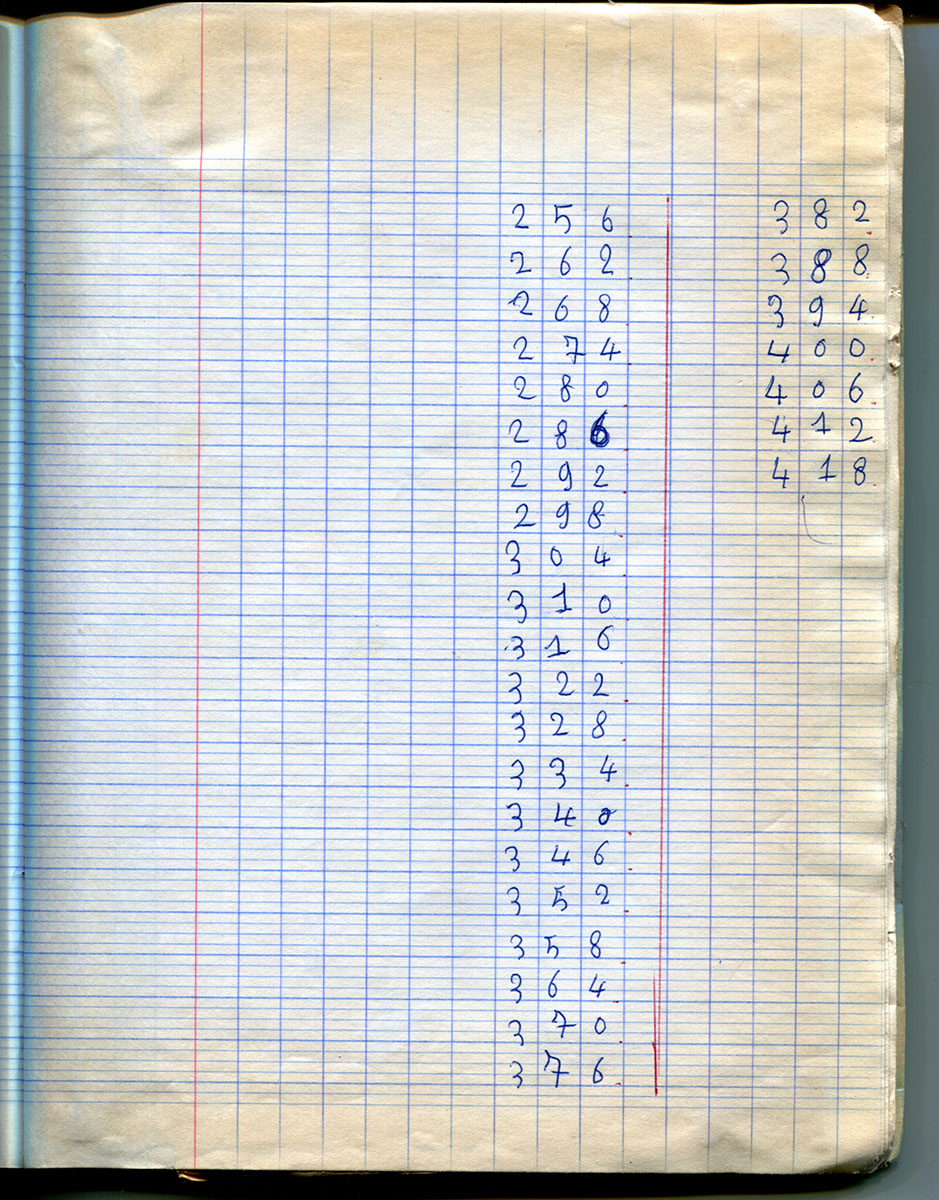 256
262
268
274
280
286
292
298
304
310
316
322
328
334
340
346
352
358
364
370
376
382
388
394
400
406
412
418